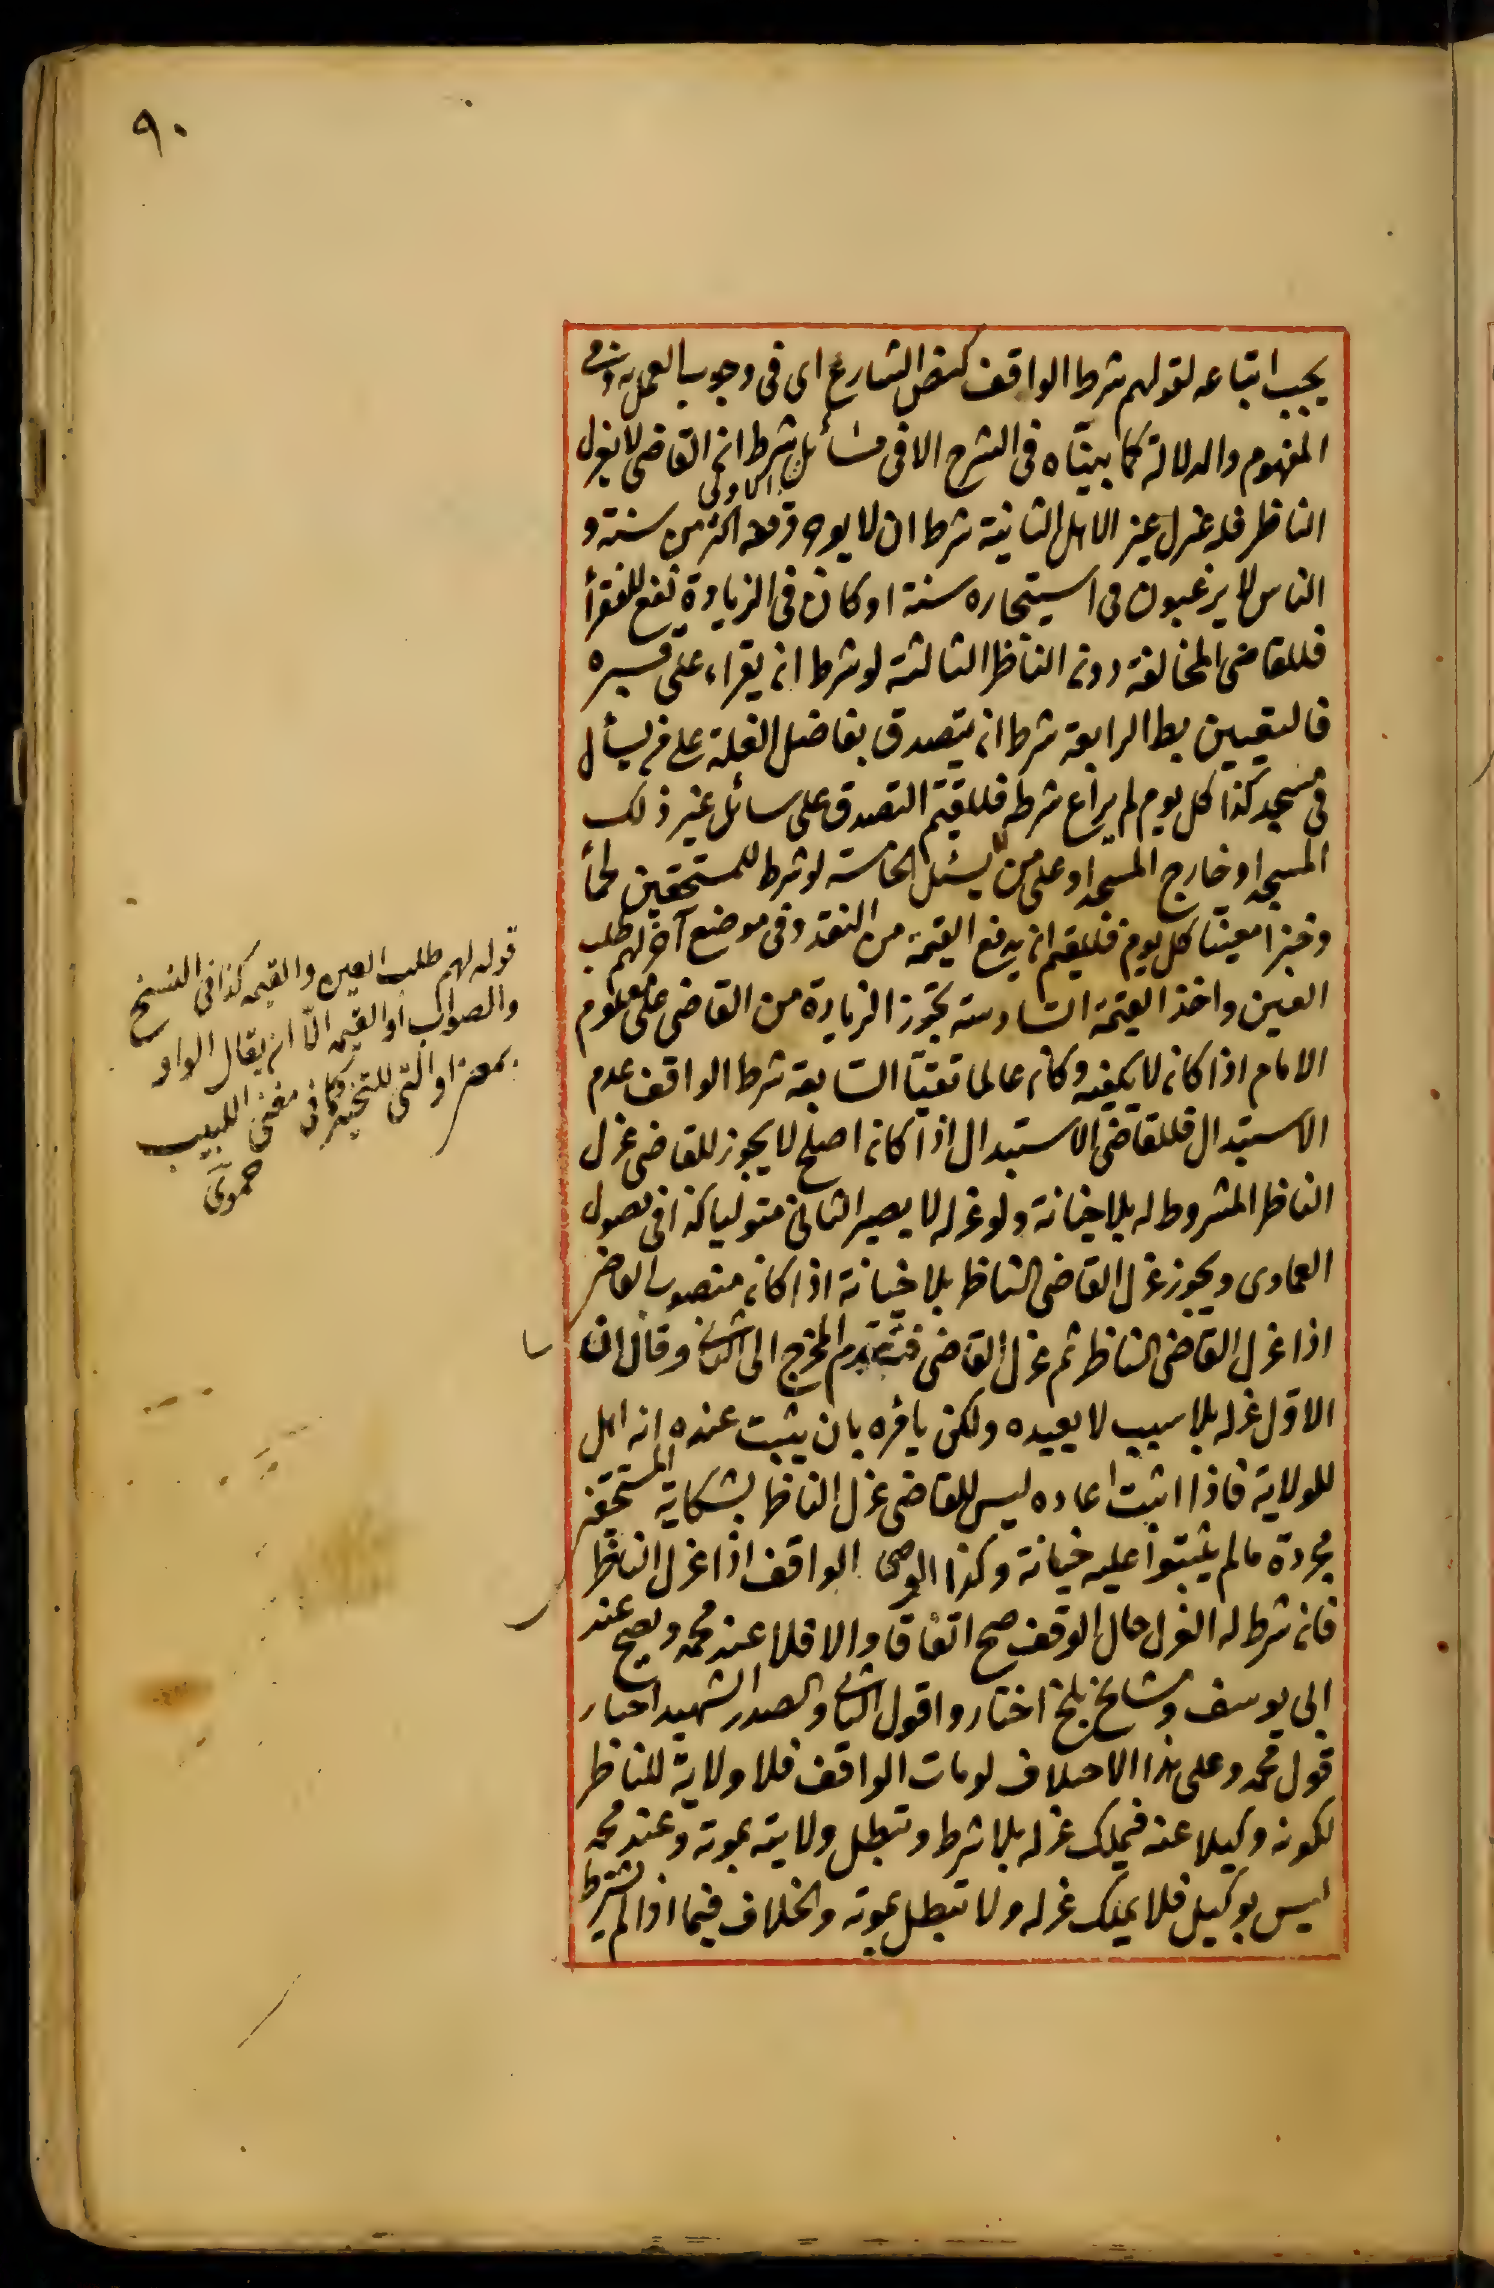 ٩٠
يجب اتباعه لقولهم شرط الواقف كنص الشارع اى فى وجوب العمل به وفى
المفهوم والدلالة كما بيناه فى الشرح الا فى مسائل شرط ان القاضى لا يعزل
الاولى
الناظر فله عزل غير الاهل الثانية شرط ان لا يوجر وقفه اكثر من سنة و
الناس لا يرغبون فى استيجاره سنة او كان فى الزيادة نفع للفقرأ
فللقاضى المخالفة دون الناظر الثالثة لو شرط ان يقراء على قبره
فالتعيين بط الرابعة شرط ان يتصدق بفاضل الغلة على من يسأل
فى مسجد كذا كل يوم لم يراع شرطه فللقيم التصدق على سائل غير ذلك
المسجد او خارج المسجد او على من لا يسئل الخامسة لو شرط للمستحقين لحما
وخبزا معينا كل يوم فللقيم ان يدفع القيمة من النقد وفى موضع آخر لهم طلب
العين واخذ القيمة السادسة تجوز الزيادة من القاضى على معلوم
الامام اذا كان لا يكفيه وكان عالما تقيا السابعة شرط الواقف عدم
الاستبدال فللقاضى الاستبدال اذا كان اصلح لا يجوز للقاضى عزل
الناظر المشروط له بلا خيانة ولو عزله لا يصير الثانى متوليا كذا فى فصول
العمادى ويجوز عزل القاضى الناظر بلا خيانة اذا كان منصوب القاضى
اذا عزل القاضى الناظر ثم عزل القاضى فتقدم المخرج الى الثانى وقال ان
الاول عزله بلا سبب لا يعيده ولكن يأمره بان يثبت عنده انه اهل
للولاية فاذا اثبت اعاده ليس للقاضى عزل الناظر بشكاية المستحقين
مجردة ما لم يثبتوا عليه خيانة وكذا الوصى الواقف اذا عزل الناظر
فان شرط له العزل حال الوقف صح اتفاقا والا فلا عند محمد ويصح عند
ابى يوسف ومشايخ بلخ اختاروا قول الثانى والصدر الشهيد اختار
قول محمد وعلى هذا الاختلاف لو مات الواقف فلا ولاية للناظر
لكونه وكيلا عنه فيملك عزله بلا شرط وتبطل ولايته بموته وعند محمد
ليس بوكيل فلا يملك عزله ولا تبطل بموته والخلاف فيما اذا لم يشترط
قوله لهم طلب العين والقيمه كذا فى النسخ
والصواب او القيمه الا ان يقال الواو
بمعنى او التى للتخيير كما فى مغنى اللبيب
حموى